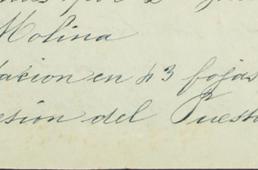 Molina
lacion en 43 fojas
esión del Puest